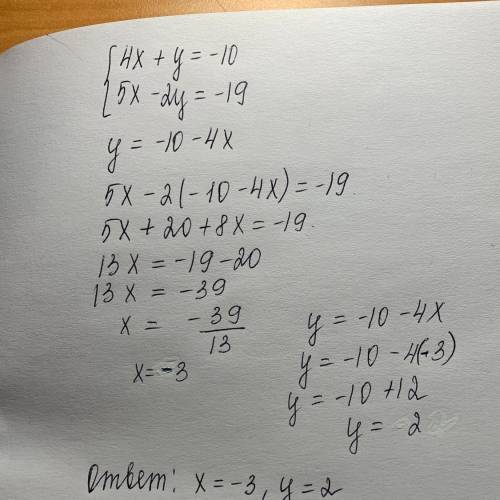 4x + y = -10
5x - 2y = -19
y = -10 - 4x
5x - 2(-10 - 4x) = -19.
5x + 20 + 8x = -19.
13x = -19 - 20
13x = -39
x = -39/13
x = -3
y = -10 - 4x
y = -10 - 4(-3)
y = -10 + 12
y = 2
Ответ: x = -3, y = 2